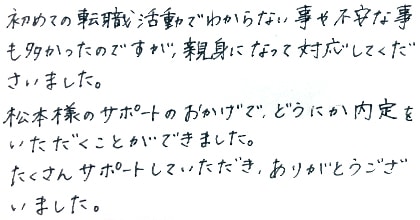 初めての転職活動でわからない事や不安な事
も多かったのですが、親身になって対応してくだ
さいました。
松本様のサポートのおかげで、どうにか内定を
いただくことができました。
たくさんサポートしていただき、ありがとうござ
いました。